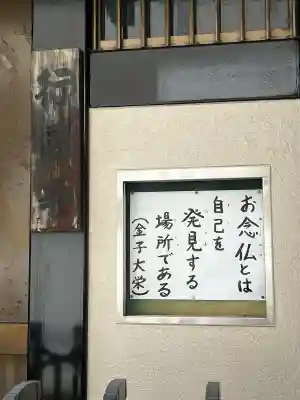 お念仏とは
自己を
発見する
場所である
(金子大栄)